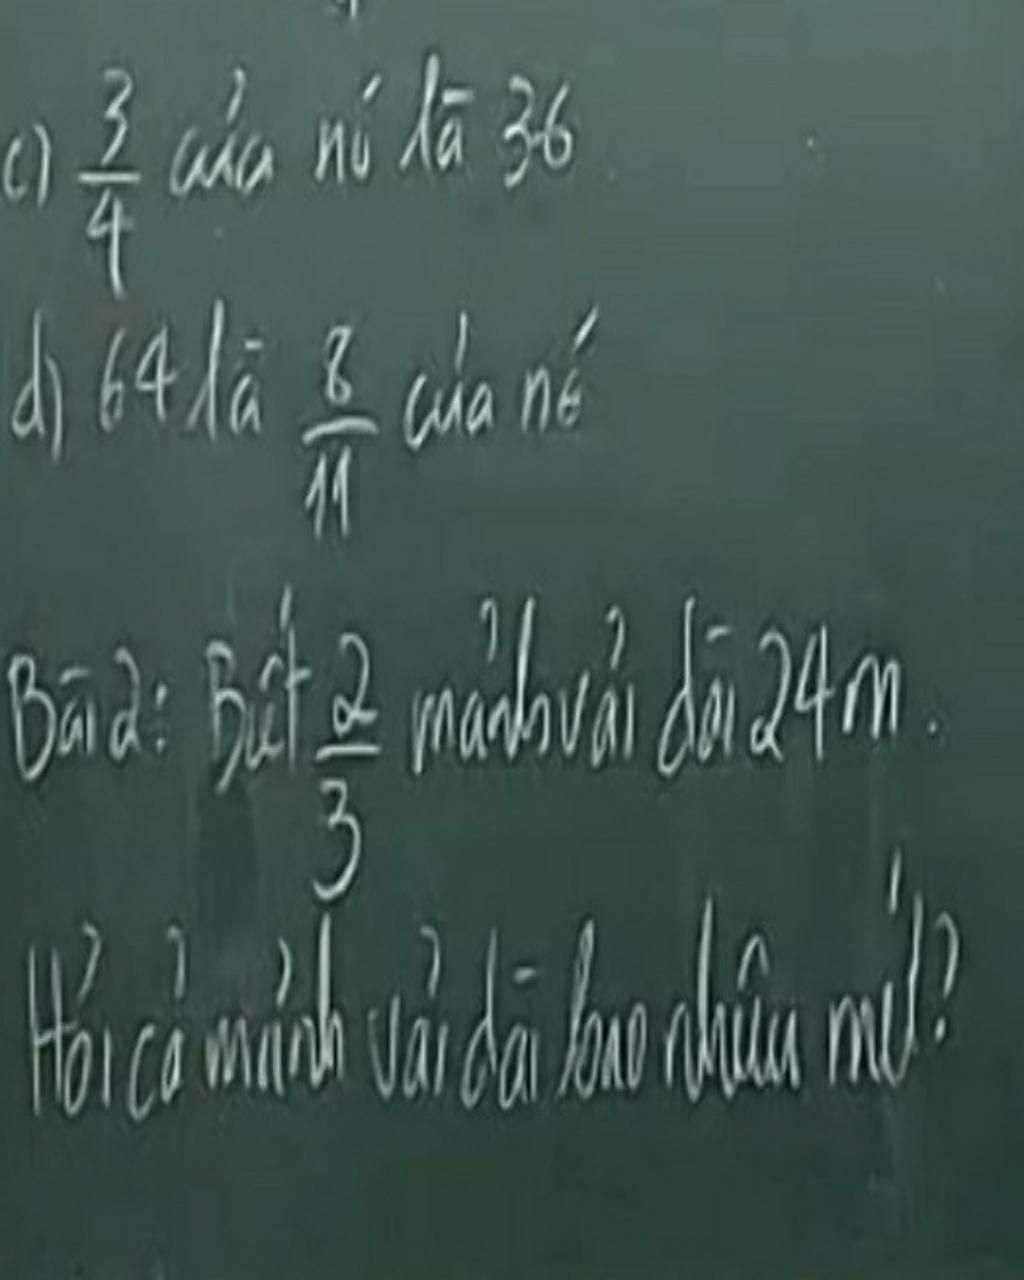 c) 3/4 của nó là 36
d) 64 là 8/11 của nó
Bài 2: Biết 2/3 mảnh vải dài 24m.
Hỏi cả mảnh vải dài bao nhiêu mét?